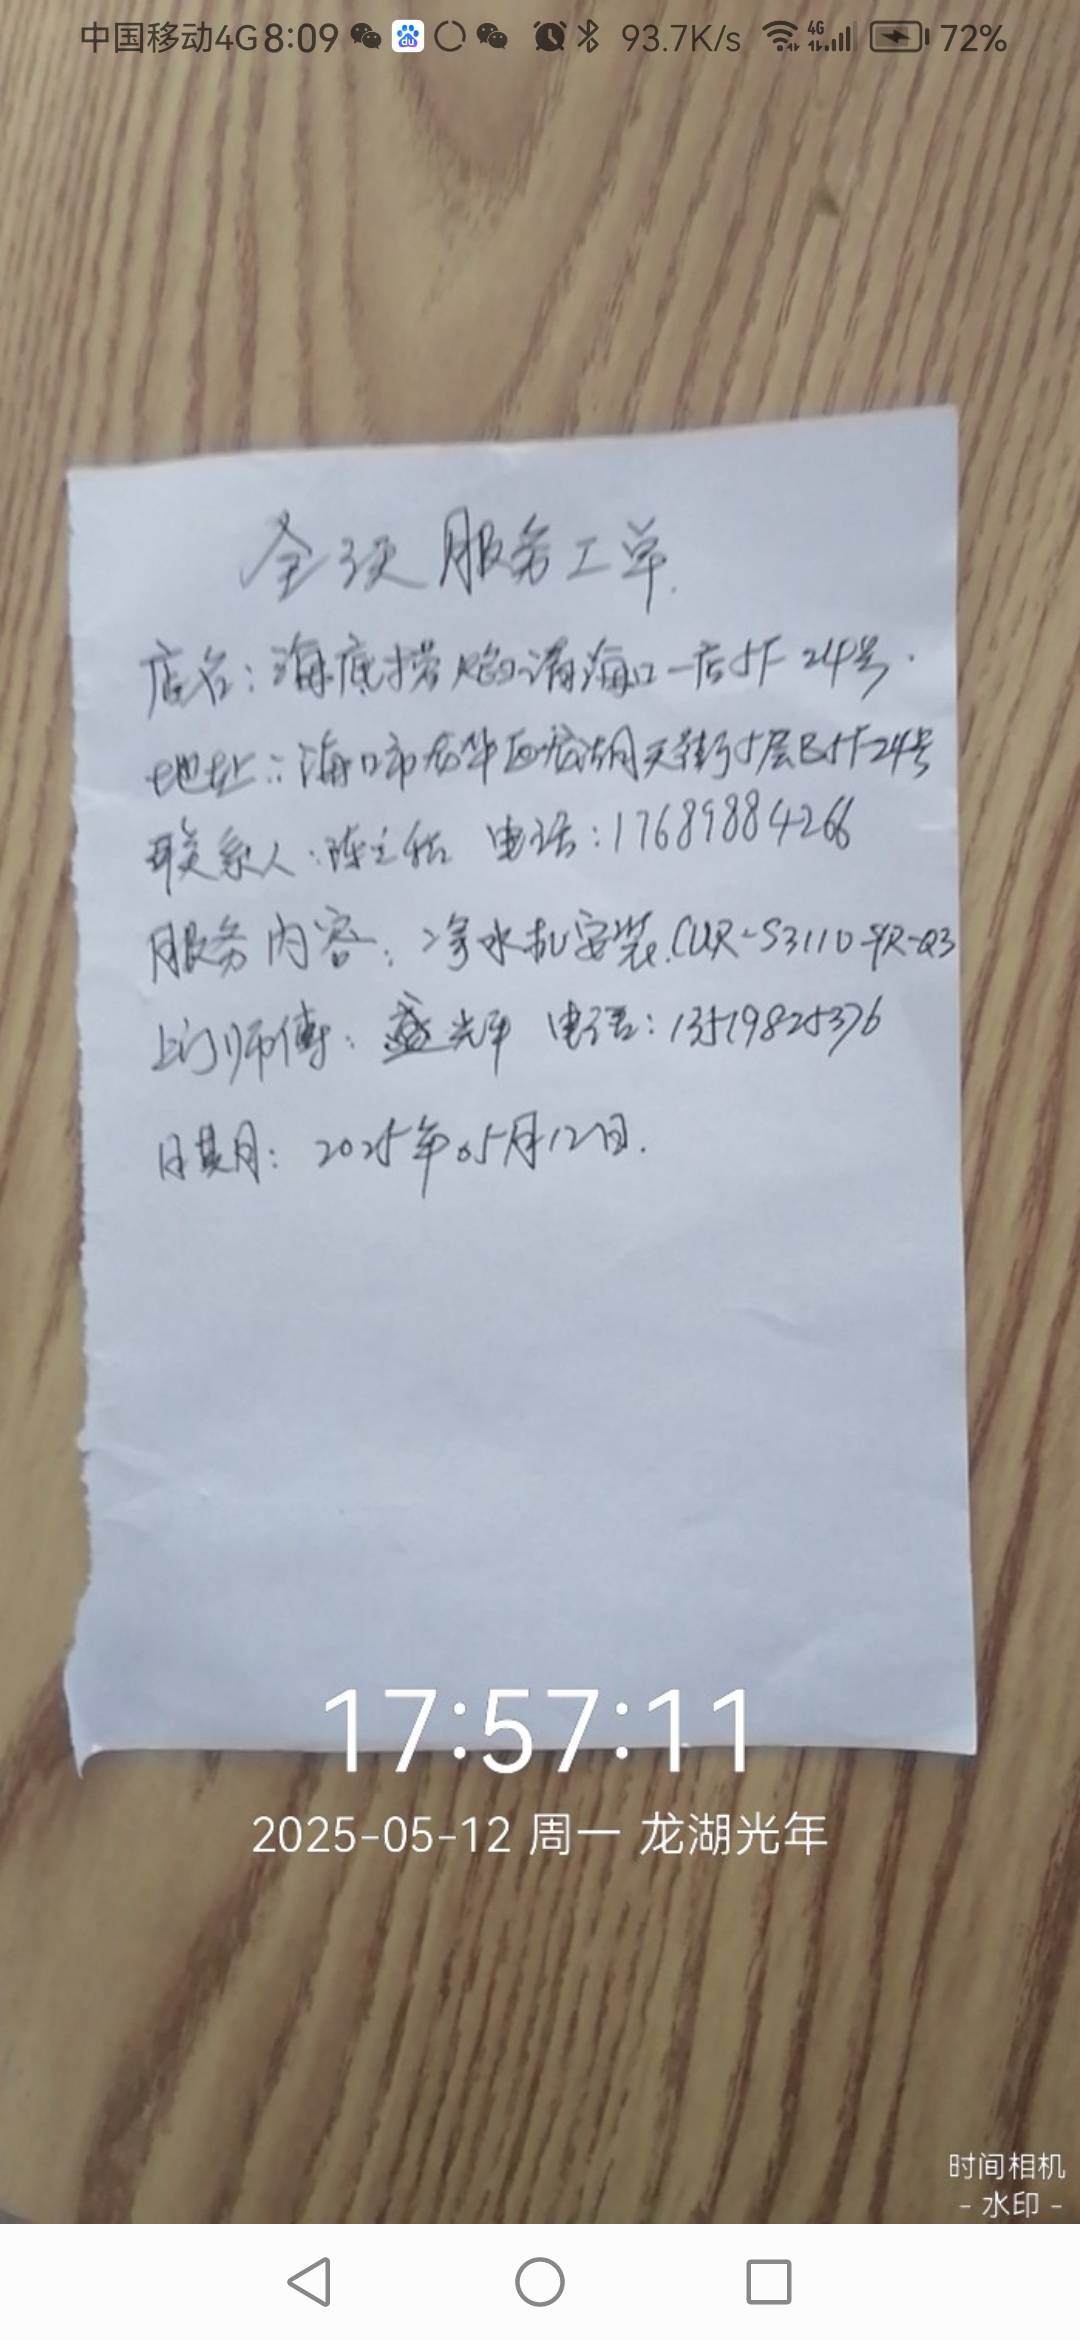 中国移动4G 8:09 93.7K/s 4G 72%
服务工单.
店名：海底捞 海口一店5F 24号.
地址：海口市龙华区龙湖天街5层B5F-24号
联系人：陈 电话：17689884266
服务内容：净水机安装.CUR-S3110-YR-Q3
上门师傅：盛光平 电话：13519825376
日期：2025年05月12日.
17:57:11
2025-05-12 周一 龙湖光年
时间相机
- 水印 -